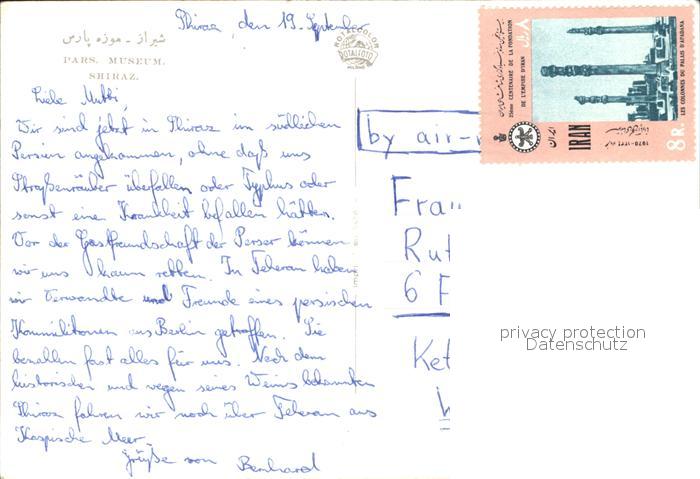 Shiraz, den 19. September
شیراز - موزه پارس
PARS. MUSEUM.
SHIRAZ.
Liebe Mutti,
Wir sind jetzt in Shiraz im südlichen
Persien angekommen, ohne daß uns
Straßenräuber überfallen oder Typhus oder
sonst eine Krankheit befallen hätten.
Vor der Gastfreundschaft der Perser können
wir uns kaum retten. In Teheran haben
wir Verwandte und Freunde eines persischen
Kommilitonen aus Berlin getroffen. Sie
bezahlen fast alles für uns. Nach dem
historischen und wegen seines Weins bekannten
Shiraz fahren wir noch über Teheran ans
Kaspische Meer.
Grüße von Bernhard
ROTALCOLOR
ROTALFOTO
by air-
Frau
Rut
6 F
Ket
2500e CENTENAIRE DE LA FONDATION
DE L'EMPIRE D'IRAN
ایران
IRAN
LES COLONNES DU PALAIS D'APADANA
1970-۱۳۴۹
8 R.
۸ ریال
privacy protection
Datenschutz